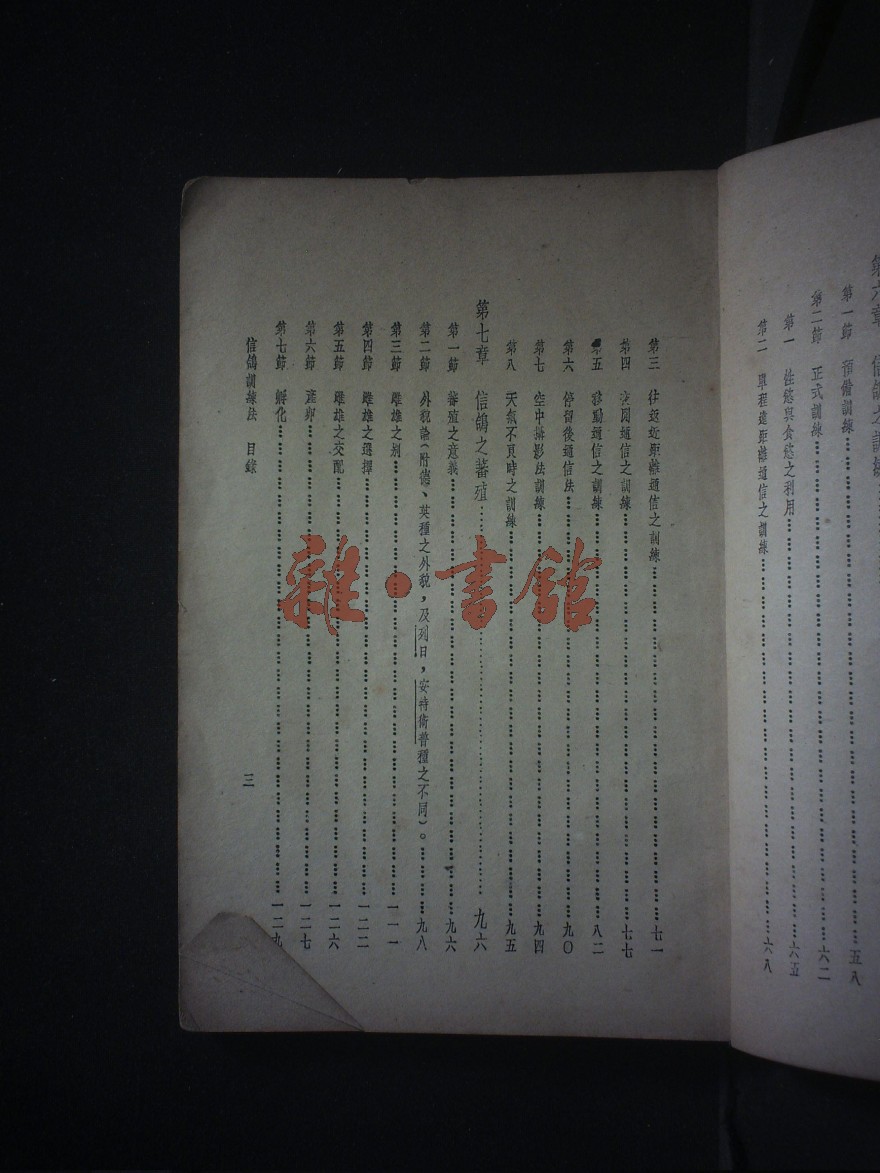 第六章 信鴿之訓練
第一節 預備訓練 五八
第二節 正式訓練 六二
第一 性慾與食慾之利用 六五
第二 單程遠距離通信之訓練 六八
第三 往返近距離通信之訓練 七一
第四 夜間通信之訓練 七七
第五 移動通信之訓練 八二
第六 停留後通信法 九〇
第七 空中攝影法訓練 九四
第八 天氣不良時之訓練 九五
第七章 信鴿之蕃殖 九六
第一節 蕃殖之意義 九六
第二節 外貌論(附德、英種之外貌,及列日,安特衛普種之不同)。 九八
第三節 雌雄之别 一一一
第四節 雌雄之選擇 一二二
第五節 雌雄之交配 一二六
第六節 產卵 一二七
第七節 孵化 一二九
信鴿訓練法 目錄 三
雜·書館